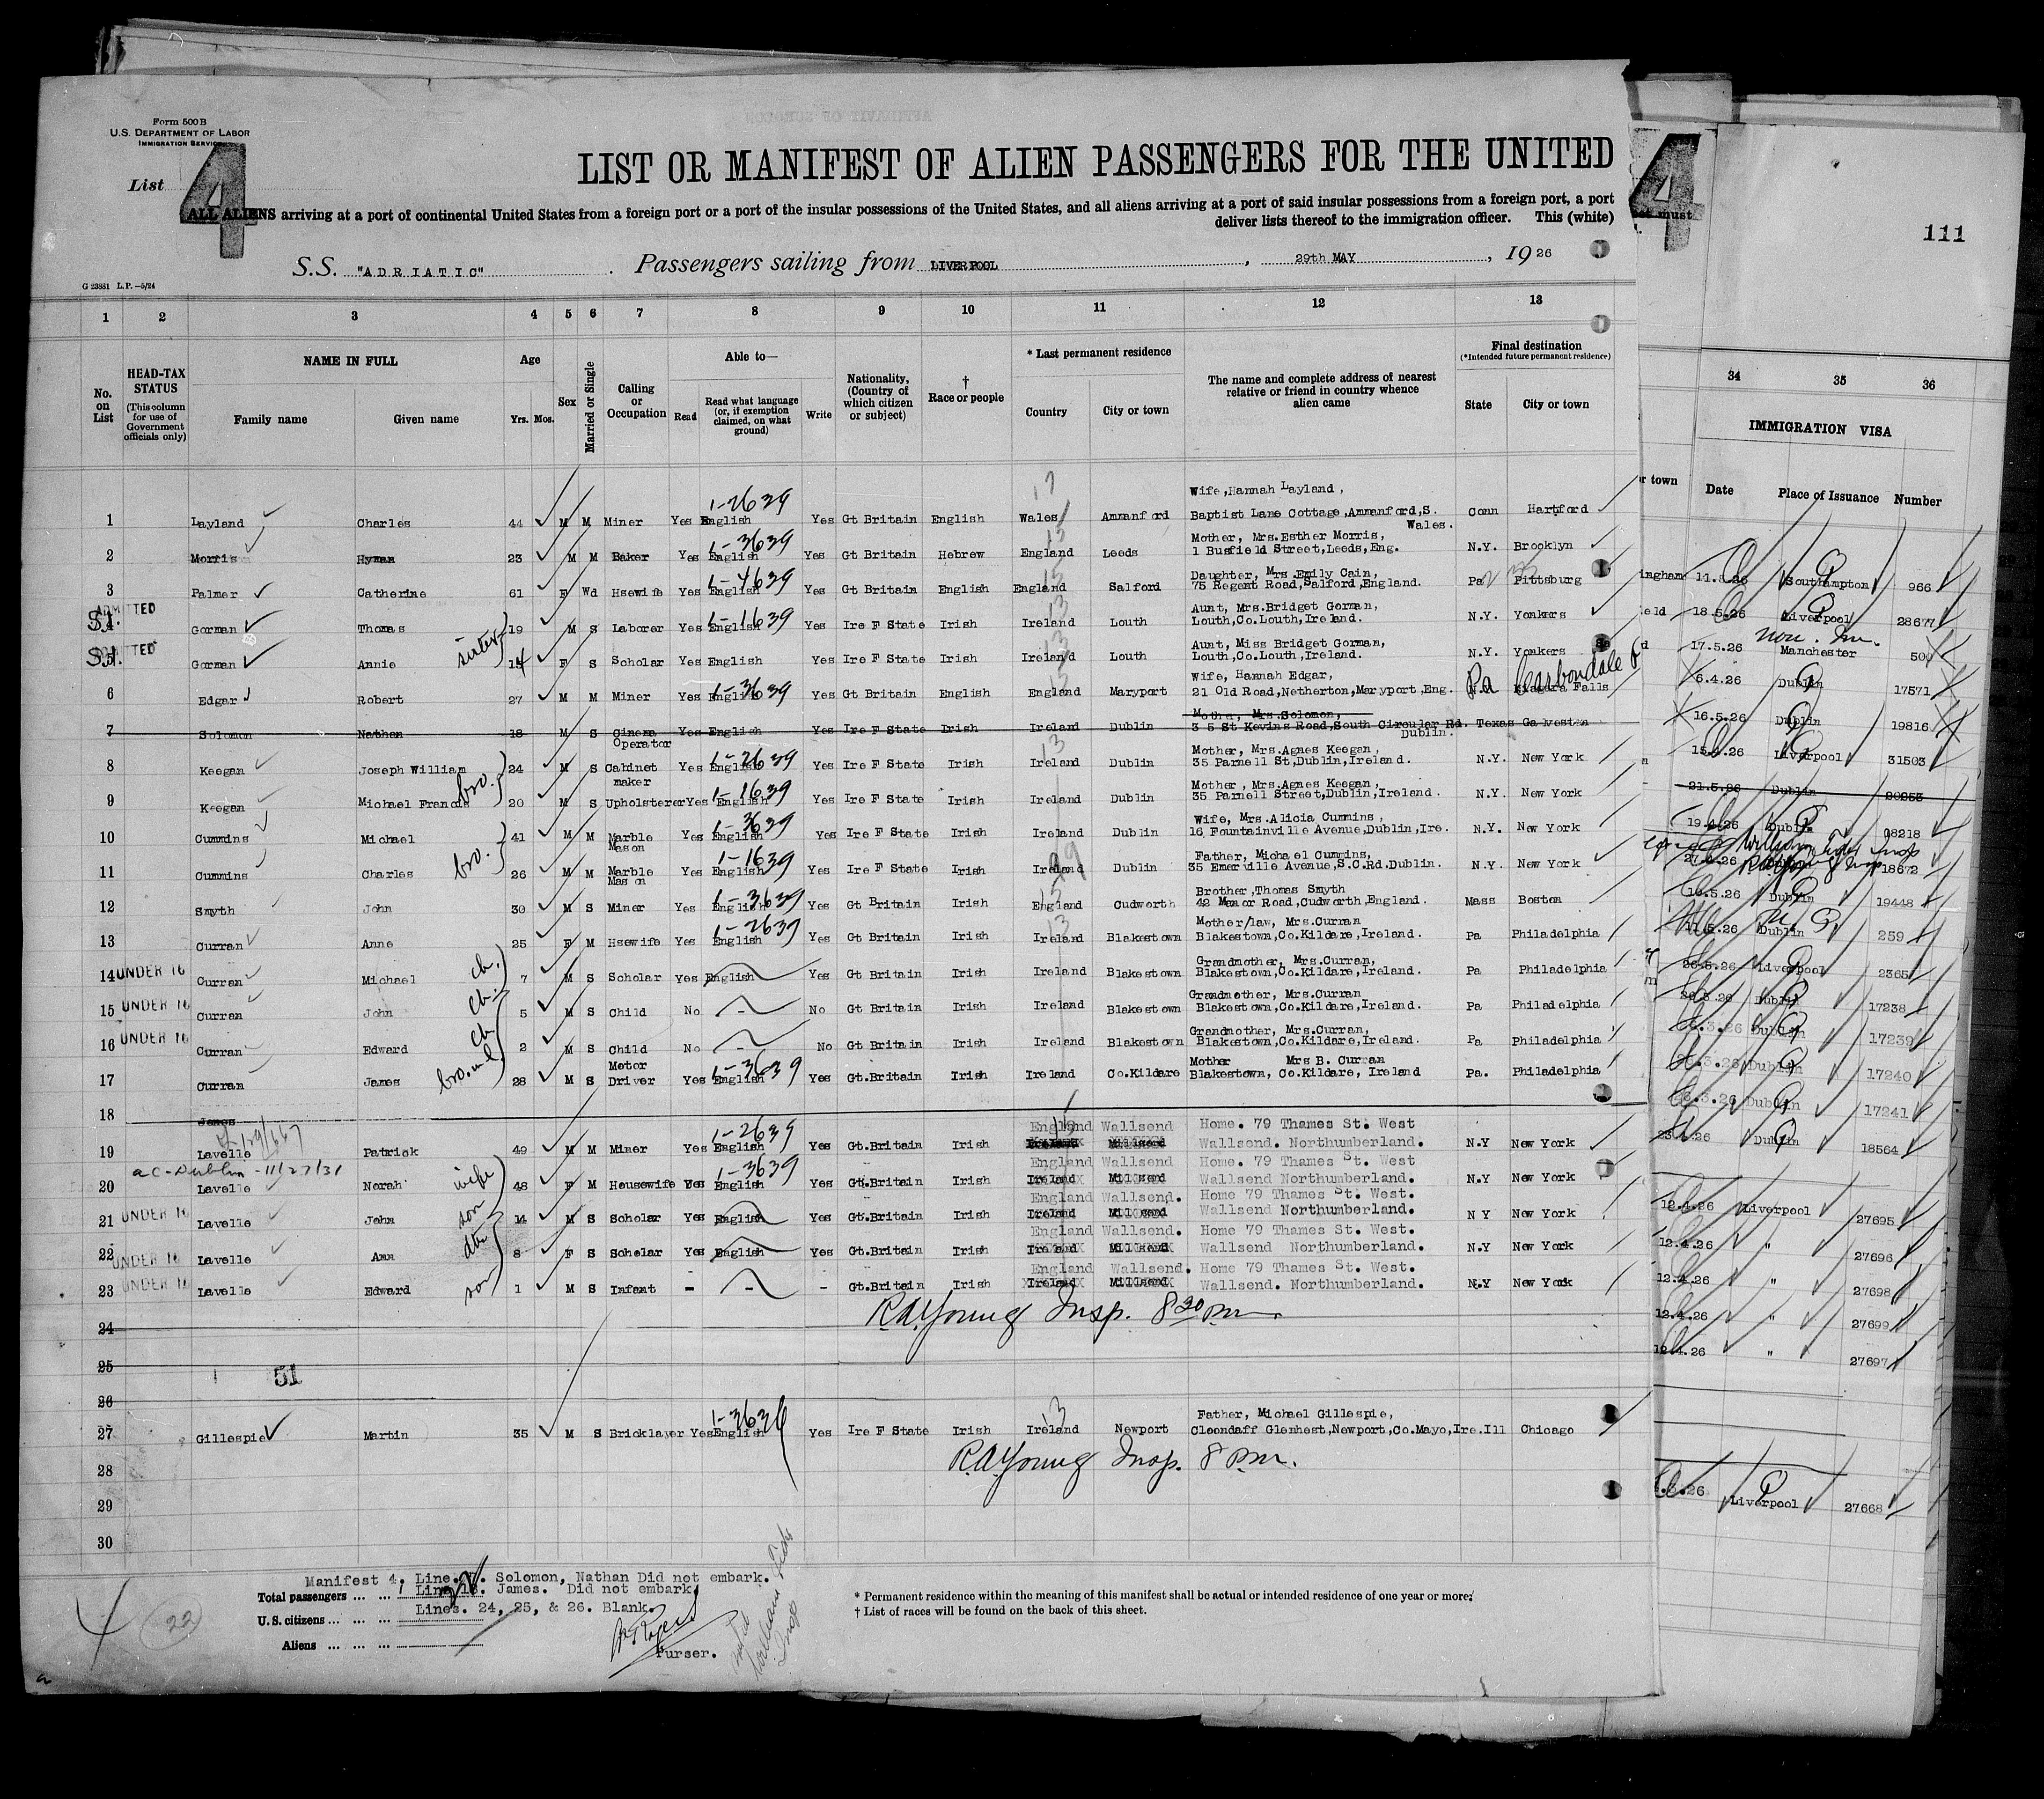 Form 500 B
U.S. DEPARTMENT OF LABOR
IMMIGRATION SERVICE
List 4
LIST OR MANIFEST OF ALIEN PASSENGERS FOR THE UNITED
ALL ALIENS arriving at a port of continental United States from a foreign port or a port of the insular possessions of the United States, and all aliens arriving at a port of said insular possessions from a foreign port, a port
deliver lists thereof to the immigration officer. This (white)
S.S. "ADRIATIC" . Passengers sailing from LIVERPOOL , 29th MAY , 1926
G 23881 L.P.—5/24
4
must
111
1 2 3 4 5 6 7 8 9 10 11 12 13
No. on List
HEAD-TAX STATUS (This column for use of Government officials only)
NAME IN FULL
Family name Given name
Age
Yrs. Mos.
Sex
Married or Single
Calling or Occupation
Able to—
Read Read what language (or, if exemption claimed, on what ground) Write
Nationality, (Country of which citizen or subject)
† Race or people
* Last permanent residence
Country City or town
The name and complete address of nearest relative or friend in country whence alien came
Final destination
(*Intended future permanent residence)
State City or town
34 35 36
IMMIGRATION VISA
or town Date Place of Issuance Number
1-2639 17 Wife, Hannah Layland,
1 Layland Charles 44 M M Miner Yes English Yes Gt Britain English Wales Ammanford Baptist Lane Cottage, Ammanford, S. Wales. Conn Hartford
1-3639 Mother, Mrs. Esther Morris,
2 Morris Hyman 23 M M Baker Yes English Yes Gt Britain Hebrew England Leeds 1 Busfield Street, Leeds, Eng. N.Y. Brooklyn
1-4639 Daughter, Mrs Emily Cain,
3 Palmer Catherine 61 F Wd Hsewife Yes English Yes Gt Britain English England Salford 75 Regent Road, Salford, England. Pa Pittsburg
ADMITTED S.I. 1-1639 13 Aunt, Mrs. Bridget Gorman,
4 Gorman Thomas 19 M S Laborer Yes English Yes Ire F State Irish Ireland Louth Louth, Co. Louth, Ireland. N.Y. Yonkers
ADMITTED S.I. sister 13 Aunt, Miss Bridget Gorman,
5 Gorman Annie 14 F S Scholar Yes English Yes Ire F State Irish Ireland Louth Louth, Co. Louth, Ireland. N.Y. Yonkers
1-3639 Wife, Hannah Edgar, Pa Carbondale
6 Edgar Robert 27 M M Miner Yes English Yes Gt Britain English England Maryport 21 Old Road, Netherton, Maryport, Eng. Niagara Falls
Mother, Mrs. Solomon,
7 Solomon Nathan 18 M S Cinema Operator Yes English Yes Ire F State Irish Ireland Dublin 3 5 St Kevins Road, South Circular Rd. Dublin. Texas Galveston
1-2639 13 Mother, Mrs. Agnes Keegan,
8 Keegan Joseph William 24 M S Cabinet maker Yes English Yes Ire F State Irish Ireland Dublin 35 Parnell St, Dublin, Ireland. N.Y. New York
bro. 1-1639 Mother, Mrs. Agnes Keegan,
9 Keegan Michael Francis 20 M S Upholsterer Yes English Yes Ire F State Irish Ireland Dublin 35 Parnell Street, Dublin, Ireland. N.Y. New York
1-3639 Wife, Mrs. Alicia Cummins,
10 Cummins Michael 41 M M Marble Mason Yes English Yes Ire F State Irish Ireland Dublin 16 Fountainville Avenue, Dublin, Ire. N.Y. New York
bro. 1-1639 Father, Michael Cummins,
11 Cummins Charles 26 M M Marble Mason Yes English Yes Ire F State Irish Ireland Dublin 35 Emerville Avenue, S.C.Rd. Dublin. N.Y. New York
1-3639 Brother, Thomas Smyth
12 Smyth John 30 M S Miner Yes English Yes Gt Britain Irish England Cudworth 42 Manor Road, Cudworth, England. Mass Boston
1-2639 13 Mother/law, Mrs. Curran
13 Curran Anne 25 F M Hsewife Yes English Yes Gt Britain Irish Ireland Blakestown Blakestown, Co. Kildare, Ireland. Pa Philadelphia
Grandmother, Mrs. Curran,
14 UNDER 16 Curran Michael ch. 7 M S Scholar Yes English Yes Gt Britain Irish Ireland Blakestown Blakestown, Co. Kildare, Ireland. Pa Philadelphia
Grandmother, Mrs. Curran
15 UNDER 16 Curran John ch. 5 M S Child No - No Gt Britain Irish Ireland Blakestown Blakestown, Co. Kildare, Ireland. Pa Philadelphia
Grandmother, Mrs. Curran,
16 UNDER 16 Curran Edward ch 2 M S Child No - No Gt Britain Irish Ireland Blakestown Blakestown, Co. Kildare, Ireland. Pa Philadelphia
1-3639 Mother Mrs B. Curran
17 Curran James bro. in l. 28 M S Motor Driver Yes English Yes Gt. Britain Irish Ireland Co. Kildare Blakestown, Co. Kildare, Ireland Pa. Philadelphia
18 James
1-2639 England Wallsend Home. 79 Thames St. West
19 Lavelle Patrick 49 M M Miner Yes English Yes Gt. Britain Irish Ireland Millsend Wallsend. Northumberland. N.Y New York
ac-Dublin-11/27/31 1-3639 England Wallsend Home. 79 Thames St. West
20 Lavelle Norah wife 48 F M Housewife Yes English Yes Gt. Britain Irish Ireland Millsend Wallsend Northumberland. N.Y New York
England Wallsend. Home 79 Thames St. West.
21 UNDER 16 Lavelle John son 14 M S Scholar Yes English Yes Gt. Britain Irish Ireland Millsend Wallsend Northumberland. N Y New York
England Wallsend. Home 79 Thames St. West.
22 UNDER 16 Lavelle Ann dtr 8 F S Scholar Yes English Yes Gt. Britain Irish Ireland Millsend Wallsend Northumberland. N.Y New York
England Wallsend. Home 79 Thames St. West.
23 UNDER 16 Lavelle Edward son 1 M S Infant - - - Gt. Britain Irish Ireland Millsend Wallsend. Northumberland. N.Y New York
R.A. Young Insp. 8 30 pm
24
25
51
26
1-3636 13 Father, Michael Gillespie,
27 Gillespie Martin 35 M S Bricklayer Yes English Yes Ire F State Irish Ireland Newport Cloondaff Glenhest, Newport, Co. Mayo, Ire. Ill Chicago
R.A. Young Insp. 8 p.m.
28
29
30
ingham 11.5.26 Southampton 966
ield 18.5.26 Liverpool 28677
non. Im.
17.5.26 Manchester 500
6.4.26 Dublin 17571
16.5.26 Dublin 19816
15.4.26 Liverpool 31503
21.5.26 Dublin 20253
19.4.26 Dublin 08218
27.4.26 18672
19.5.26 Dublin 19448
11.5.26 Dublin 259
26.5.26 Liverpool 2365
26.3.26 Dublin 17238
26.3.26 Dublin 17239
26.3.26 Dublin 17240
26.3.26 Dublin 17241
Dublin 18564
12.4.26 Liverpool 27695
12.4.26 " 27696
12.4.26 " 27698
12.4.26 " 27699
12.4.26 " 27697
Liverpool 27668
Manifest 4. Line. 7. Solomon, Nathan Did not embark.
Line 18. James. Did not embark
Lines. 24, 25, & 26. Blank.
Total passengers ... ...
U.S. citizens ... ...
Aliens ... ... ...
22
Purser.
* Permanent residence within the meaning of this manifest shall be actual or intended residence of one year or more.
† List of races will be found on the back of this sheet.